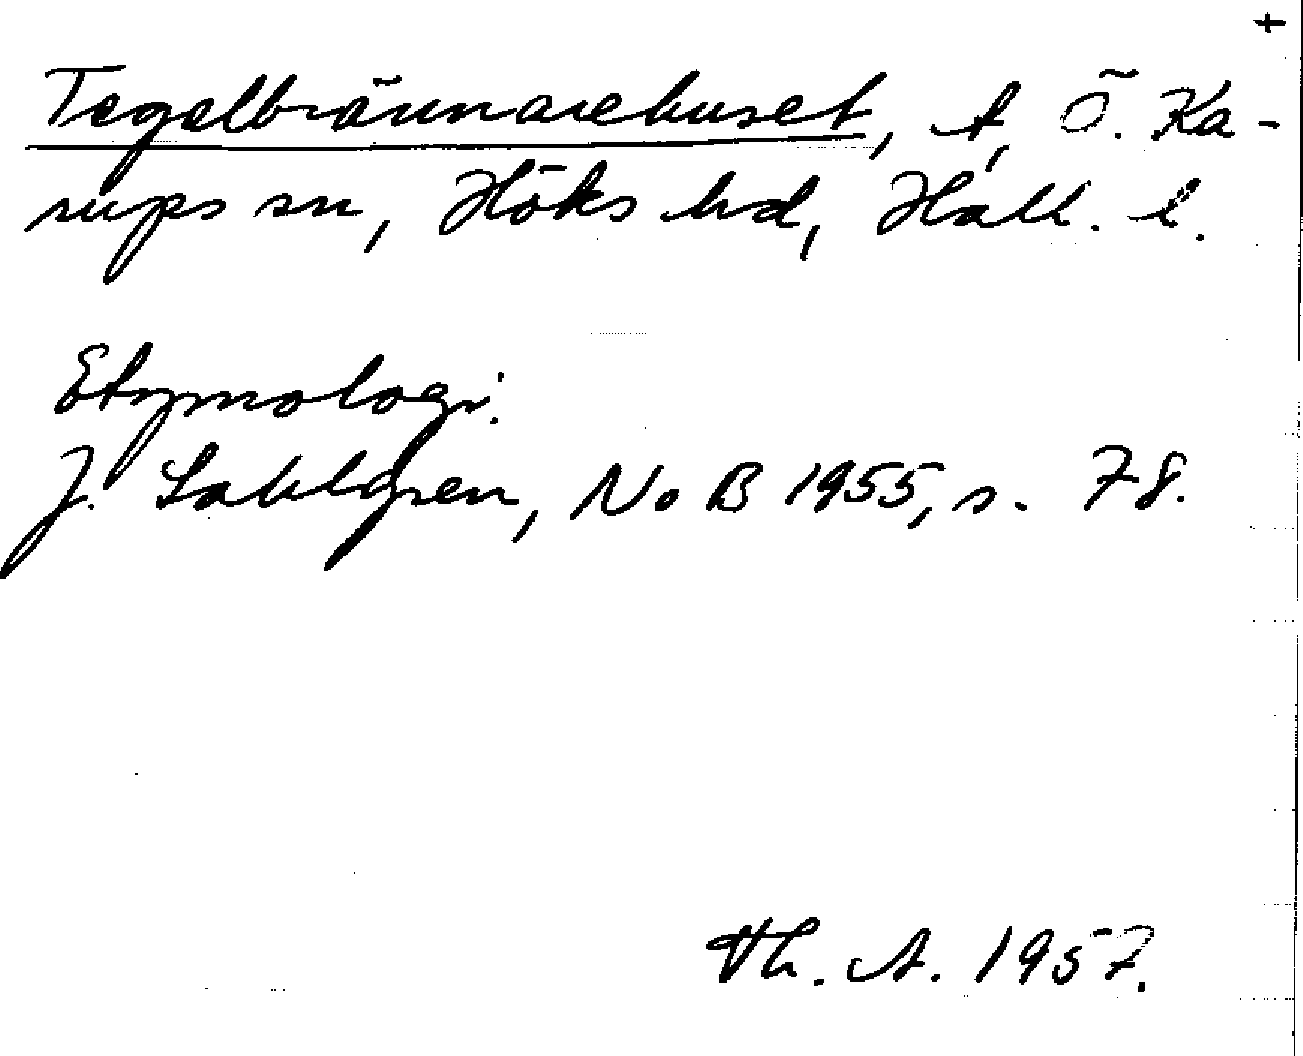 Tegelbrännarehuset, t, Ö. Ka-
rups sn, Höks hd, Hall. l.
Etymologi:
J. Sahlgren, NoB 1955, s. 78.
Th. A. 1957.